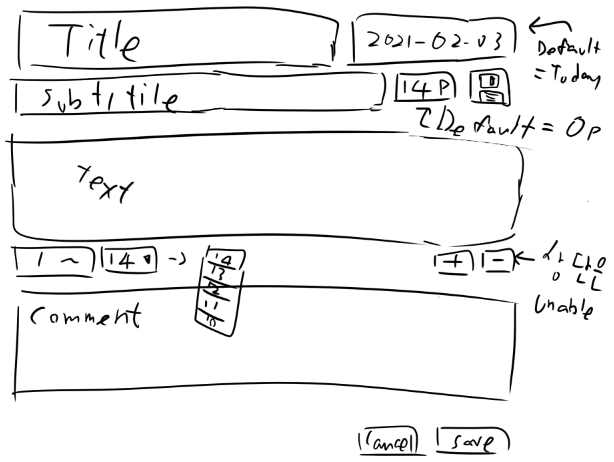 Title
2021-02-03
Default
= Today
subtitile
14 P
Default = 0p
Text
1 ~
14
14
13
12
11
10
+
-
unable
comment
Cancel
save